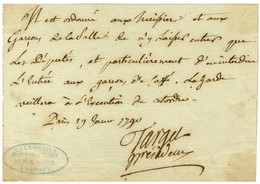 Il est ordonné aux huissier et aux
Garçon de la Salle de n'y laisser entrer que
les Députés, et particulierement d'interdire
l'Entrée aux garçon de Caffé. La Garde
veillera à l'Execution de l'ordre.
Paris 29 Janv 1790
Target
président